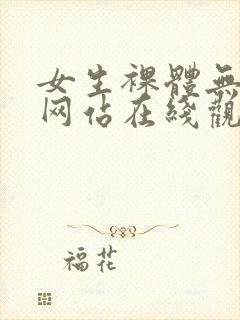 女生裸體無
网站在綫觀
福花